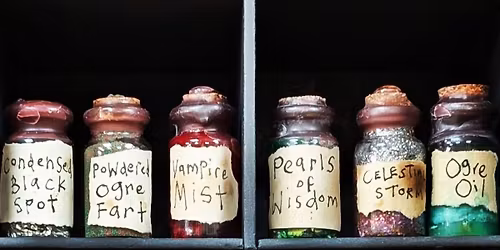 Condensed
Black
Spot
Powdered
Ogre
Fart
Vampire
Mist
Pearls
of
Wisdom
CELESTIAL
STORM
Ogre
Oil